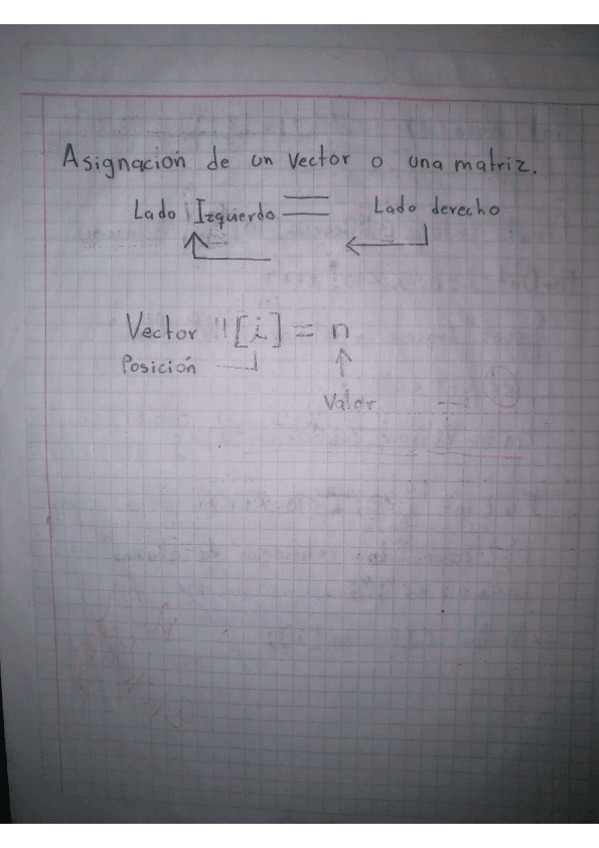 Asignación de un Vector o una matriz.
Lado Izquierdo = Lado derecho
Vector 4[i] = n
Posición
Valor